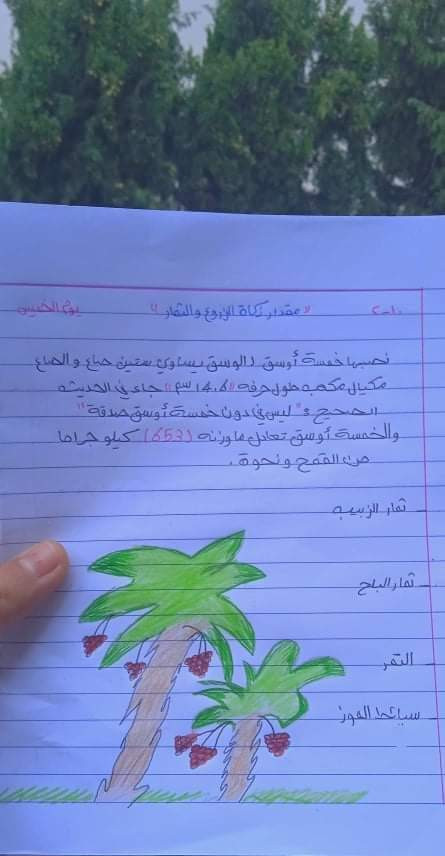 يوم الخميس "مقدار زكاة الزروع والثمار"
نصبها خمسة أوسق الوسق يساوي ستين صاع والصاع
مكيال مكعب طول حرفه "14,6 سم" جاء في الحديث
الصحيح: "ليس في دون خمسة أوسق صدقة"
والخمسة أوسق تعادل ما وزنه (653) كيلو جراما
من القمح ونحوة.
ثمار الزبيب
ثمار البلح
التمر
سبائط الموز